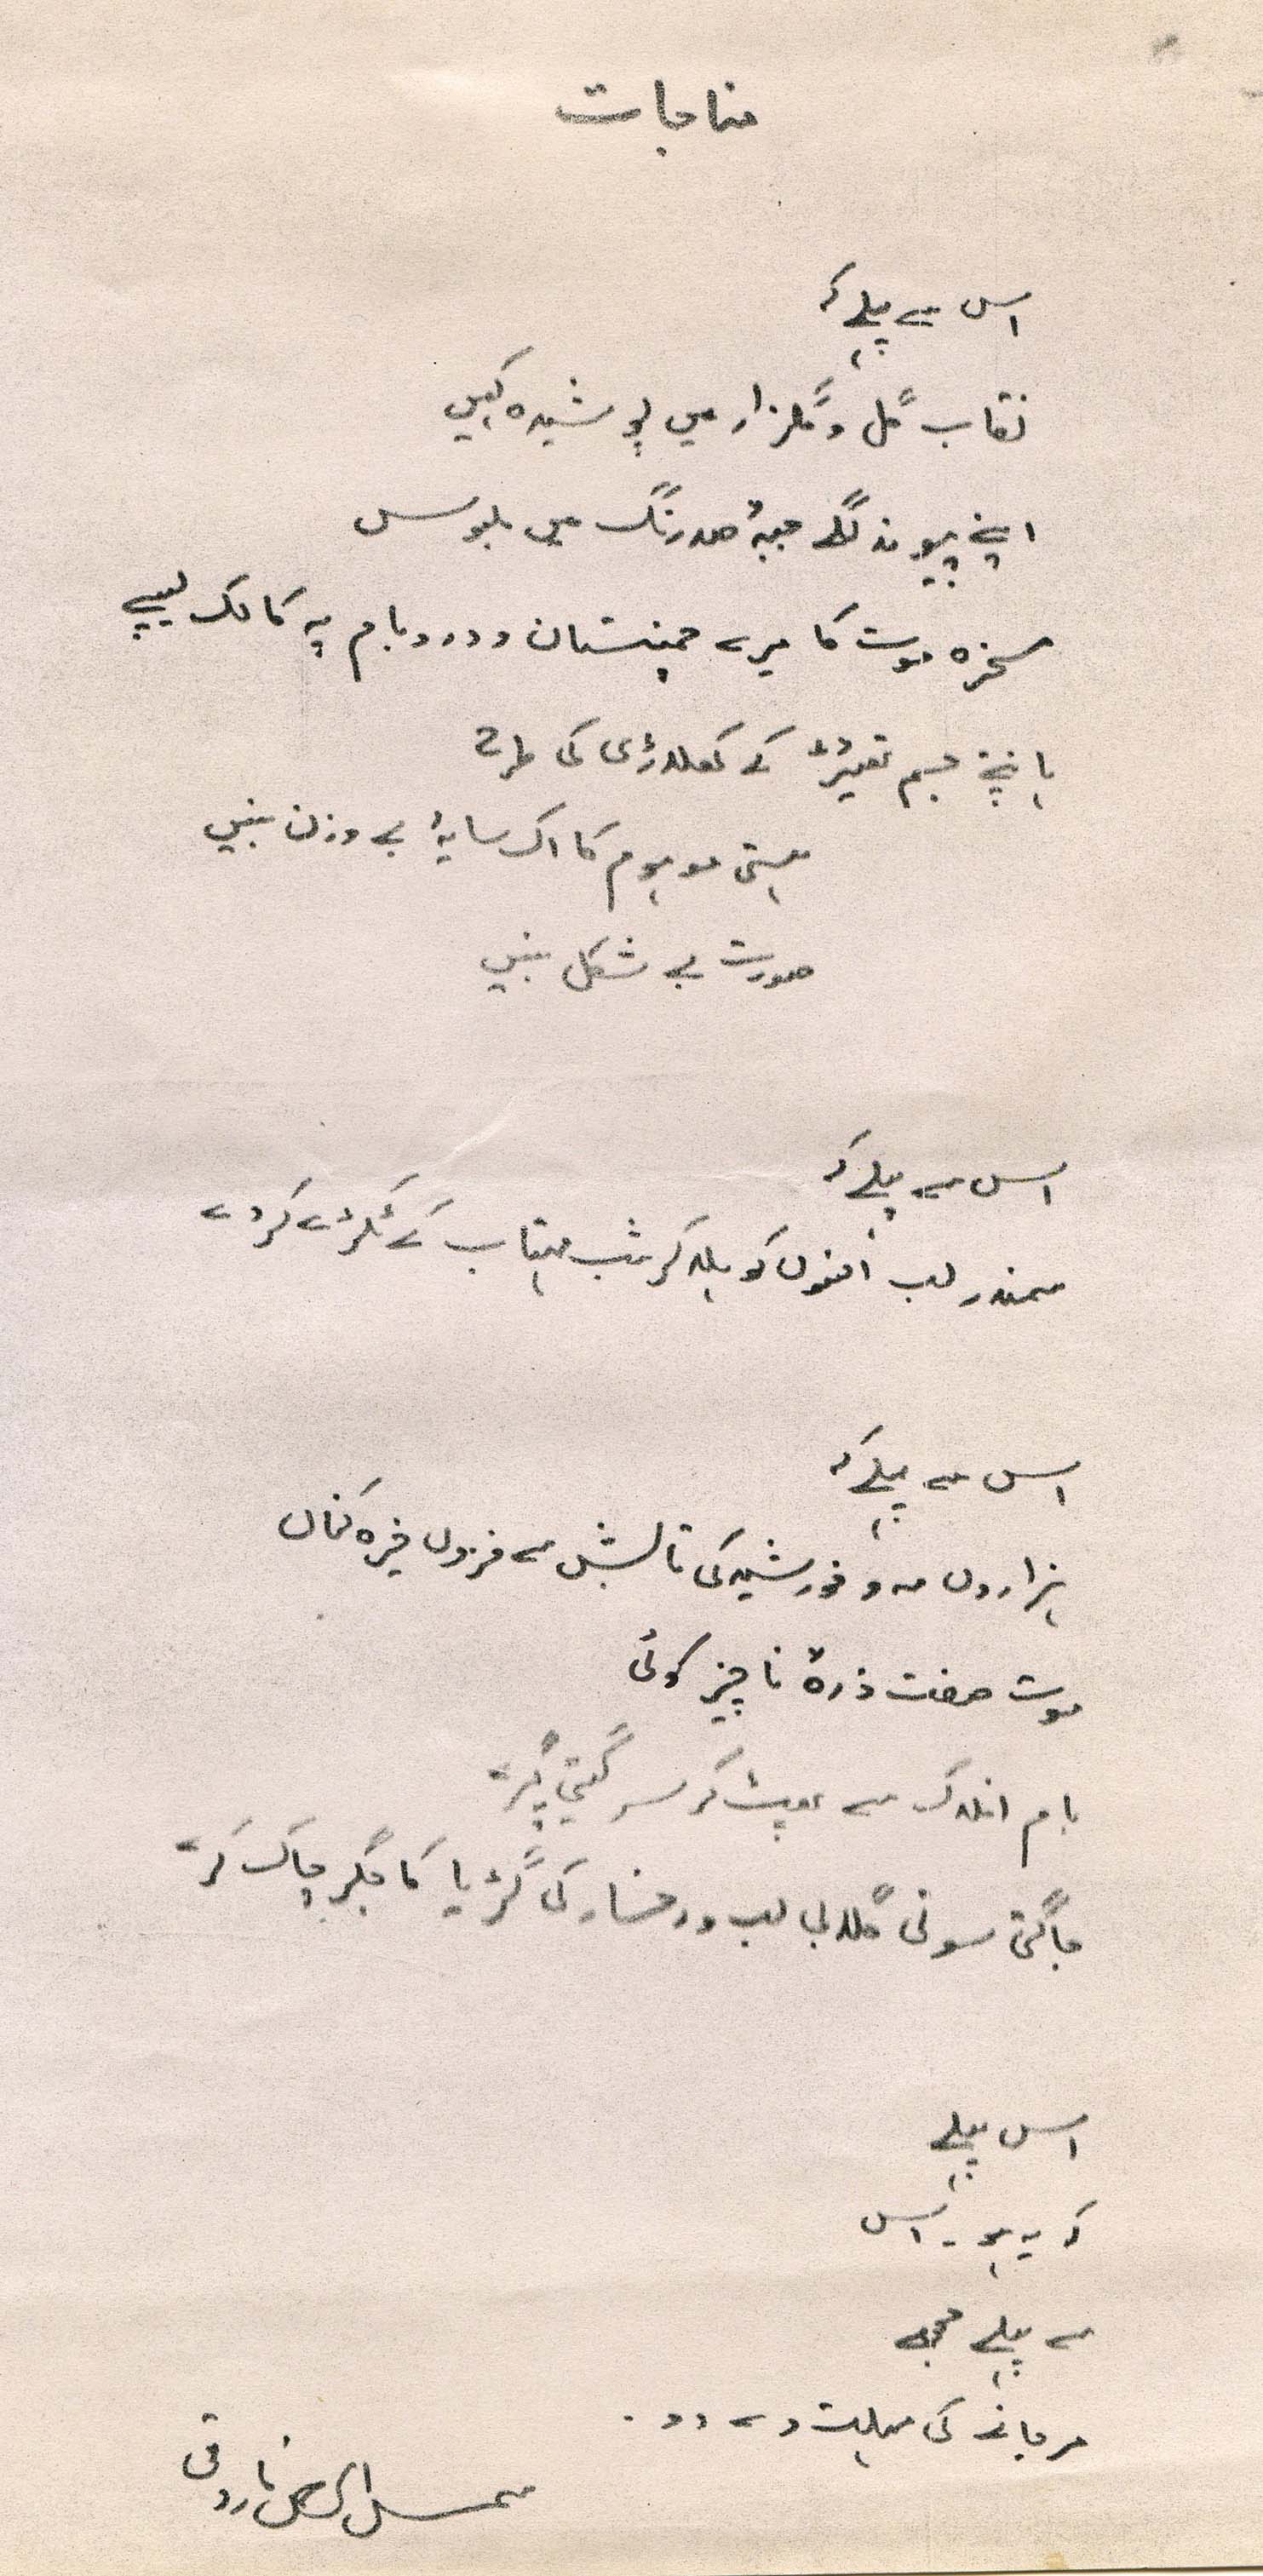 مناجات
اس سے پہلے کہ
نقاب گل و گلزار میں پوشیدہ کہیں
اپنے پیوند لگے جبۂ صد رنگ میں ملبوس
مسخرہ موت کا میرے چمنستان و در و بام پہ کالک لیپے
ہانپتے جسم تھیٹر کے کھلاڑی کی طرح
ہستی موہوم کا اک سایۂ بے وزن بنیں
صورت بے شکل بنیں
اس سے پہلے کہ
سمندر لب افسوں کو ہلا کر شب مہتاب کے ٹکڑے کردے
اس سے پہلے کہ
ہزاروں مہ و خورشید کی تابش سے فزوں خیرہ کناں
موت صفت ذرۂ ناچیز کوئی
بام افلاک سے پھٹ کر سر گیتی پہ گرے
جاگتی سوتی گلابی لب و رخسار کی گڑیا کا جگر چاک کرے
اس پہلے
کہ یہ ہو۔ اس
سے پہلے مجھے
مر جانے کی مہلت دے دو۔
شمس الرحمٰن فاروقی